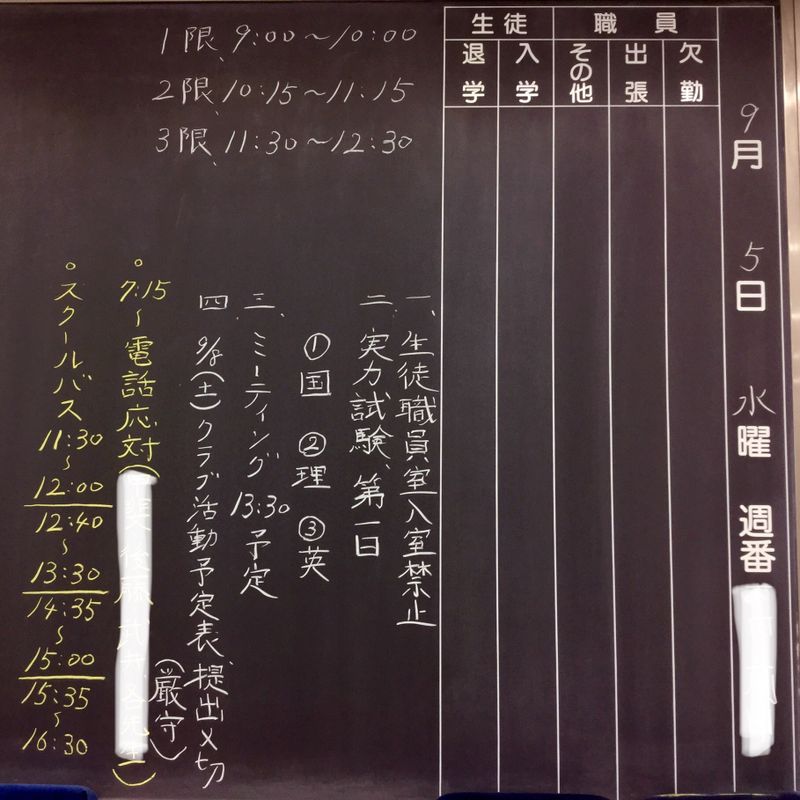 9月5日水曜 週番
職員
欠勤
出張
その他
生徒
入学
退学
1限、9:00〜10:00
2限、10:15〜11:15
3限、11:30〜12:30
一、生徒職員室入室禁止
二、実力試験、第一日
①国 ②理 ③英
三、ミーティング 13:30予定
四、9/8(土)クラブ活動予定表、提出〆切
(厳守)
○7:15〜電話応対(
○スクールバス 11:30〜12:00
12:40〜13:30
14:35〜15:00
15:35〜16:30